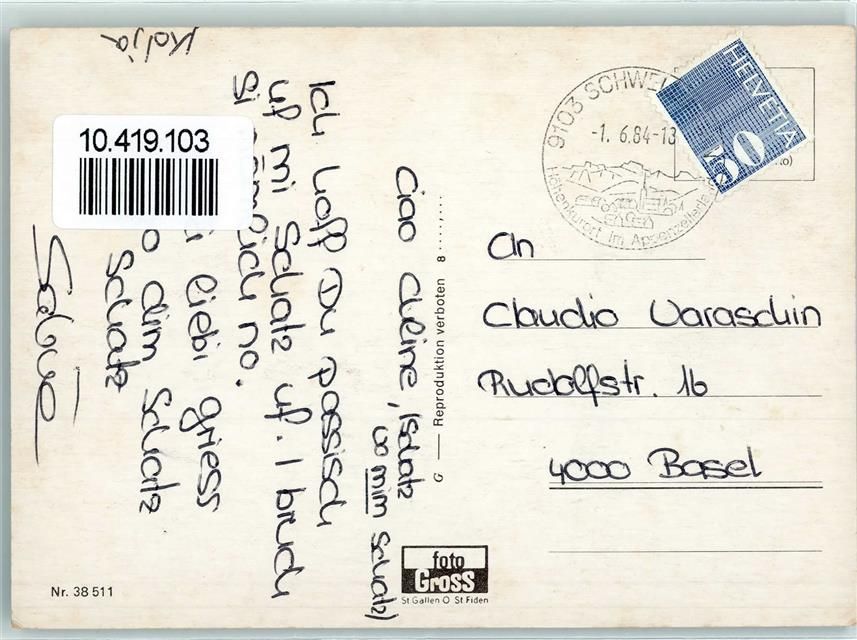 Kolja
10.419.103
Ciao Cleine, (Schatz
vo mim Schatz)
Ich hoff Du passisch
uf mi Schatz uf. I bruch
Si nämlich no.
liebi griess
vo dim Schatz
Schatz
G — Reproduktion verboten 8......
9103 SCHWEL
-1. 6.84-13
Höhenkurort im Appenzellerland
HELVETIA
50
An
Claudio Varaschin
Rudolfstr. 16
4000 Basel
Nr. 38 511
foto
Gross
St Gallen O St Fiden